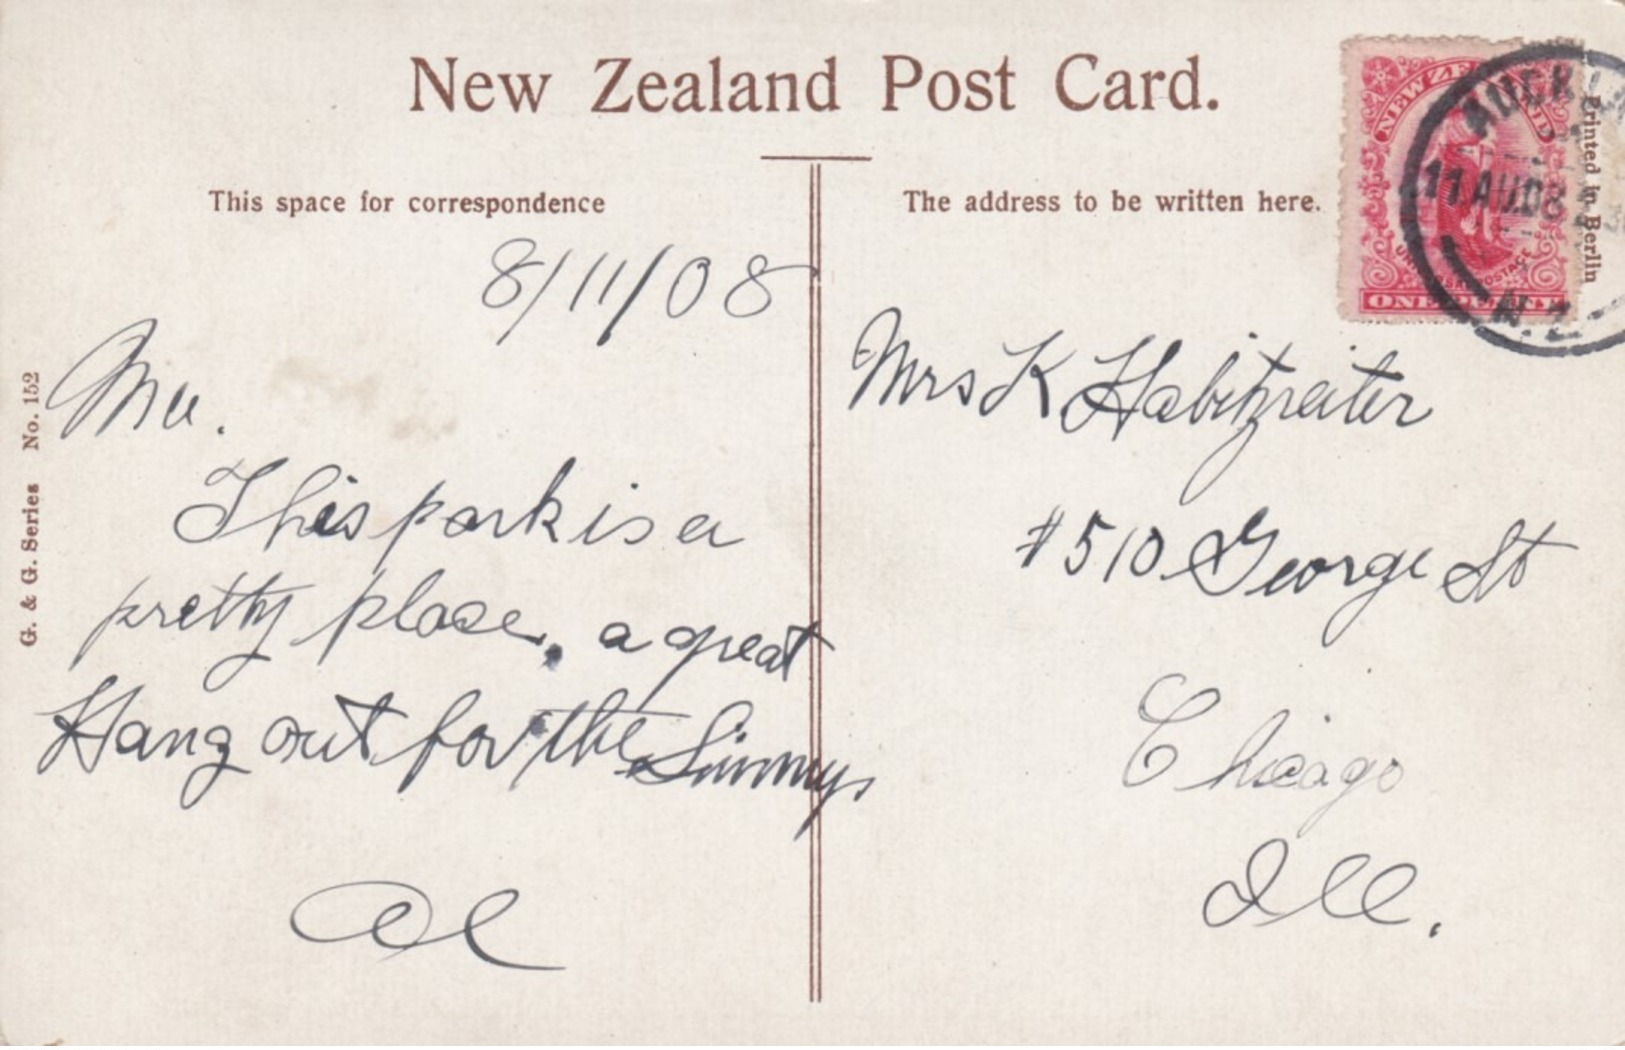 New Zealand Post Card.
This space for correspondence
The address to be written here.
NEW ZEALAND
UNIVERSAL POSTAGE
ONE PENNY
AUCKLAND
11 AU.08
N.Z.
Printed in Berlin
G. & G. Series No. 152
8/11/08
This park is a
pretty place, a great
Hang out for the
Al
Mrs K Habitzreiter
#510 George St
Chicago
Ill.